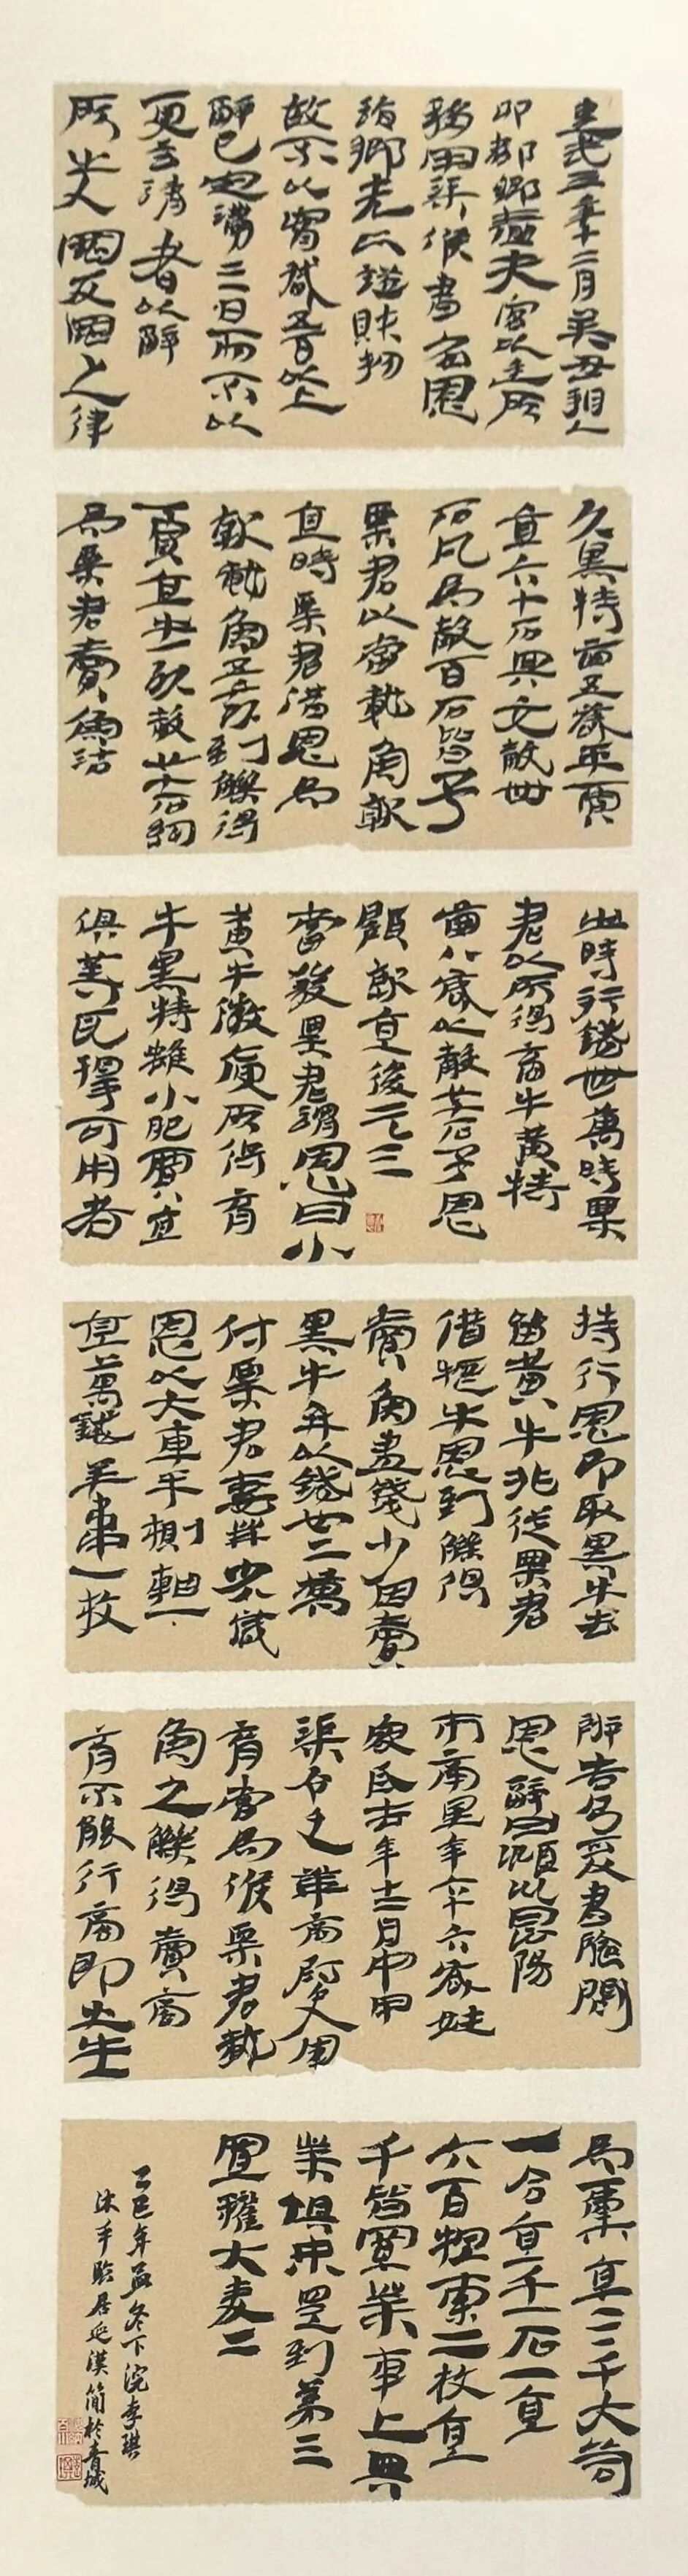 建武三年十二月癸丑朔乙
卯都鄉嗇夫宮以廷所
移甲渠候書召恩
詣鄉先以證財物
故不以實臧五百以上
辭已定滿三日而不以
更言請者以辭
所出入罪反罪之律
久黑特齒五歲平賈
直六十石與交穀卌
石凡為穀百石皆予
粟君以當載魚就
直時粟君借恩為
就載魚五千頭到觻得
賈直牛一頭穀廿七石約
為粟君賣魚沽
出時行錢卌萬時粟
君以所得商牛黃特
齒八歲以穀廿七石予恩
顧就直後二三
當發粟君謂恩曰小
黃牛微庾所得育
牛黑特雖小肥賈直
俱等耳擇可用者
持行恩即取黑牛去
留黃牛非從粟君
借牛恩到觻得
賣魚盡錢少因賣
黑牛并以錢卅二萬
付粟君妻業少八歲
恩以大車半側軸一
直萬錢羊韋一枚
辨告乃爰書驗問
恩辭曰潁川昆陽
市南里年六十六歲姓
寇氏去年十二月中甲
渠令史華商尉史周
育當為候粟君載
魚之觻得賣商
育不能行商即出牛
為橐直三千大笥
一合直千一石一直
六百索二枚直
千皆置業車上與
業俱來還到第三
置糴大麥二
乙巳年孟冬下浣李琪
沐手臨居延漢簡於青城